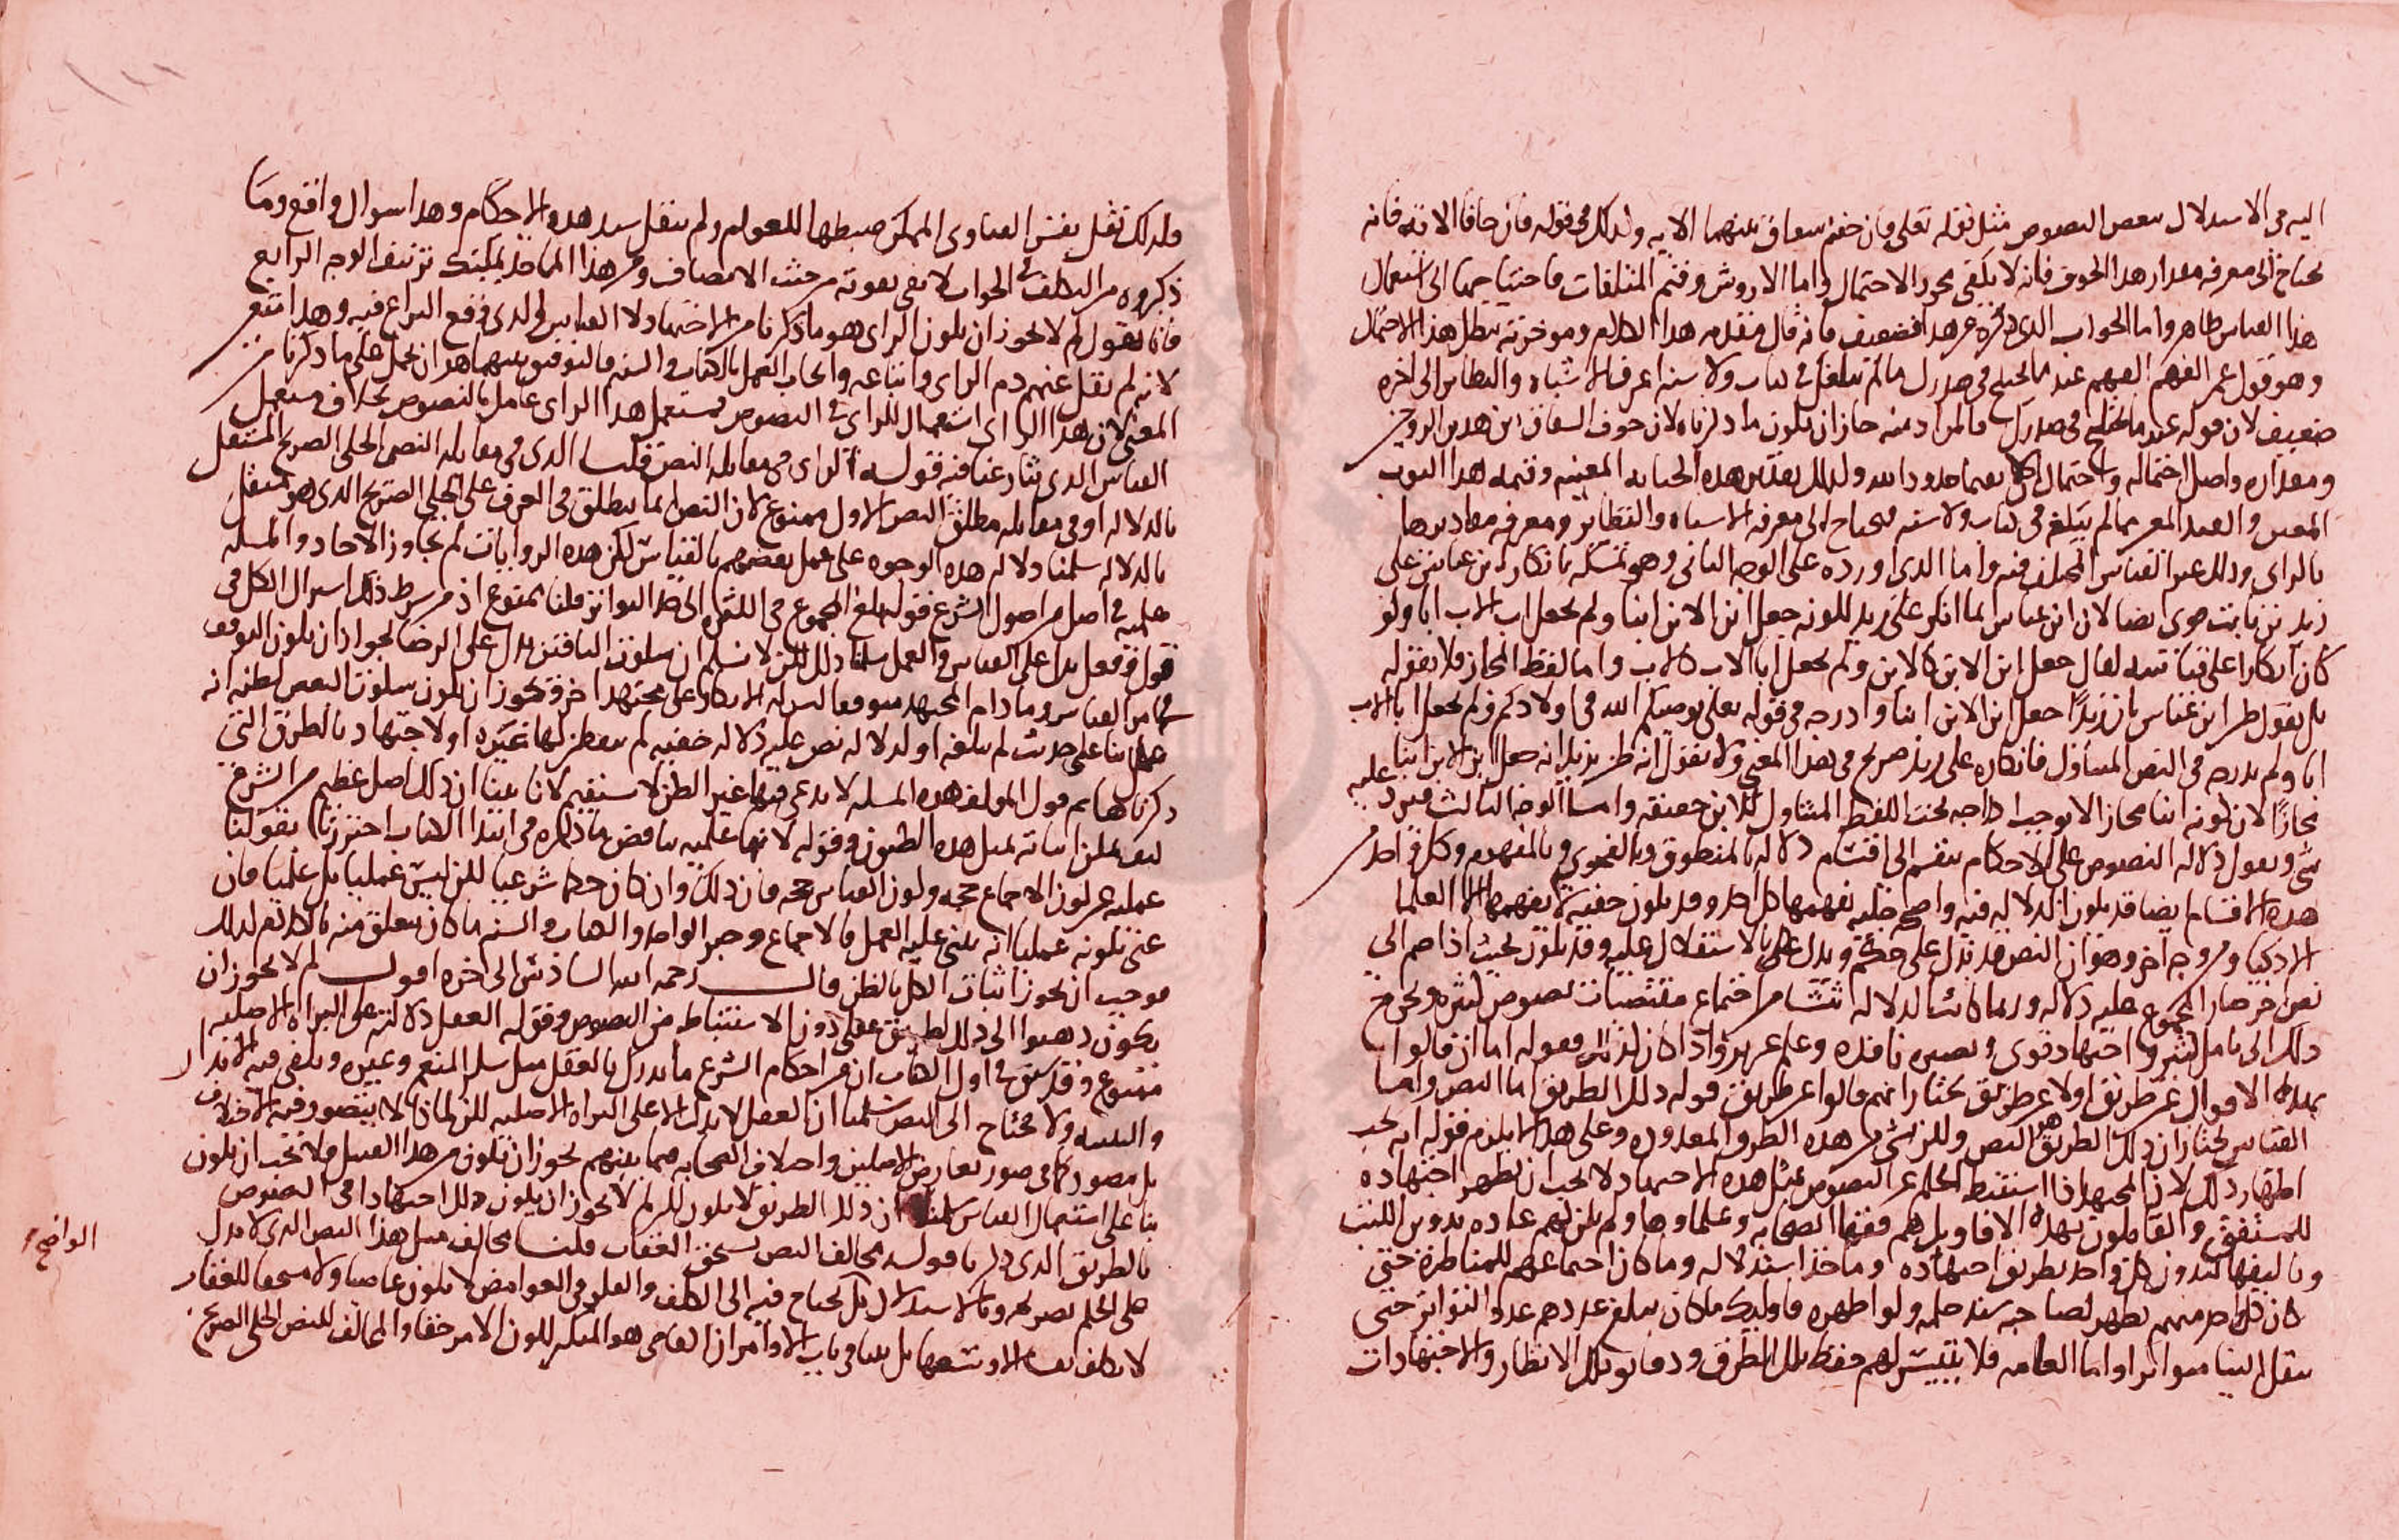 اليه في الاستدلال ببعض النصوص مثل قوله تعلى وان خفتم شقاق بينهما الايه وكذلك في قوله فان خافا الاية فانه
يحتاج الى معرفه مقدار هذا الخوف فانه لا يكفي مجرد الاحتمال واما الاروش وقيم المتلفات فاحتياجها الى استعمال
هذا القياس ظاهر واما الجواب الذي ذكره عن هذا فضعيف فانه قال مقدمه هذا الكلام وموخرته يبطل هذا الاحتمال
وهو قول عمر الفهم الفهم عند ما يختلج في صدرك ما لم يبلغك في كتاب ولا سنه اعرف الاشباه والنظاير الى اخره
ضعيف لان قوله عند ما يختلج في صدرك فالمراد منه جاز ان يكون ما ذكرناه لان خوف الشقاق بين هذين الزوجين
ومقداره واصل احتماله واحتمال ان لا يقيما حدود الله وكذلك تقدير هذه الجنايه المعينه وقيمه هذا الثوب
المعين والعبد المعين مما لم يبلغ في كتاب ولا سنه فيحتاج الى معرفه الاشباه والنظاير ومعرفه مقاديرها
بالراى وذلك غير القياس المختلف فيه واما الذي اورده على الوجه الثاني وهو تمسكه بانكار ابن عباس على
زيد بن ثابت قوى ايضا لان ابن عباس انما انكر على زيد لكونه جعل ابن الابن ابنا ولم يجعل اب الاب ابا ولو
كان انكارا على قياسه لقال جعل ابن الابن كالابن ولم يجعل ابا الاب كالاب واما لفظ المجاز فلا بقوله
بل نقول ظن ابن عباس بان زيدا جعل ابن الابن ابنا وادرجه في قوله تعلى يوصيكم الله في اولادكم ولم يجعل ابا الاب
ابا ولم يدرجه في النص المتناول فانكاره على زيد صريح في هذا المعنى ولا نقول انه ظن بزيد انه جعل ابن الابن ابنا
مجازا لان كونه ابنا مجازا لا يوجب ادراجه تحت اللفظ المتناول للابن حقيقه واما الوجه الثالث فيرد عليه
شى ونقول دلاله النصوص على الاحكام ينقسم الى اقسام دلاله بالمنطوق وبالفحوى وبالمفهوم وكل واحد من
هذه الاقسام ايضا قد يكون الدلاله فيه واضحه جليه يفهمها كل احد وقد يكون خفيه لا يفهمها الا العلما
الاذكيا ومن وجه اخر وهو ان النص قد يدل على حكم ويدل على بالاستقلال عليه وقد يكون بحيث اذا ضم الى
نص اخر صار المجموع عليه دلاله وربما كانت الدلاله تنشا من اجتماع مقتضيات نصوص كثيره ويحوج
ذلك الى تامل كثير واجتهاد قوى وبصيره نافذه وعلم غزير واذا كان كذلك فقوله اما ان قالوا
بهذه الاقوال عن طريق اولا عن طريق نختار انهم قالوا عن طريق قوله ذلك الطريق اما النص واما
القياس نختار ان ذلك الطريق هو النص ولكن شي من هذه الطرق المعدوده وعلى هذا لا يلزم قوله انه يجب
اظهار ذلك لان المجتهد اذا استنبط الحكم عن النصوص بمثل هذه الاجتهاد لا يجب ان يظهر اجتهاده
للمستفتي والقايلون بهذه الاقاويل هم فقها الصحابه وعلماوها ولم يكن لهم عاده بتدوين الكتب
وتاليفها ليدون كل واحد طريق اجتهاده وماخذ استدلاله وما كان اجتماعهم للمناظره حتى
كان كل واحد منهم يظهر لصاحبه سند حكمه ولو اظهره فاوليك ما كان يبلغ عددهم عدد التواتر حتى
ينقل الينا متواترا واما العامه فلا يتيسر لهم حفظ تلك الطرق ودقايق تلك الانظار والاجتهادات
ولذلك نقل نفس الفتاوى الممكن ضبطها للعوام ولم ينقل سند هذه الاحكام وهذا سوال واقع وما
ذكروه من التكلف في الجواب لا يفي بقوته من حيث الانصاف ومن هذا الماخذ يمكنك تزييف الوجه الرابع
فانا نقول لم لا يجوز ان يكون الراى هو ما ذكرنا من الاجتهاد لا القياس الذي وقع النزاع فيه وهذا متعين
لانه لم ينقل عنهم ذم الراى واتباعه وايجاب العمل بالكتاب والسنه فالتوفيق بينهما هو ان يحمل على ما ذكرنا من
المعنى لان هذا الراى استعمال للراى في النصوص فمستعمل هذا الراى عامل بالنصوص بخلاف مستعمل
القياس الذي تنازعنا فيه قوله الراى في مقابله النص قلنا الذي في مقابله النص الجلى الصريح المستقل
بالدلاله او في مقابله مطلق النص الاول ممنوع لان النص انما يطلق في العرف على الجلى الصريح الذي هو مستقل
بالدلاله سلمنا دلاله هذه الوجوه على عمل بعضهم بالقياس لكن هذه الروايات لم تجاوز الاحاد والمسله
علميه في اصل من اصول الشرع فقوله بلغ المجموع في الكثره الى حد التواتر قلنا ممنوع اذ من شرط ذلك اشتراك الكل في
قول او فعل يدل على القياس والعمل سلمنا ذلك لكن لا نسلم ان سكوت الباقين يدل على الرضا لجواز ان يكون التوقف
في امر القياس وما دام المجتهد متوقفا ليس له الانكار على مجتهد اخر ويجوز ان يكون سكوت البعض لظنه انه
عمل بنا على حديث لم يبلغه او لدلاله نص عليه دلاله خفيه لم يتفطن لها غيره او لاجتهاد بالطرق التي
ذكرناها ثم قول المولف هذه المسله لا يدعى فيها غير الظن لا يستقيم لانا بينا ان ذلك اصل عظيم من الشرع
كيف يمكن اثباته بمثل هذه الظنون وقوله لانها عمليه يناقض ما ذكره في ابتدا الكتاب احترزنا بقولنا
عمليه عن كون الاجماع حجه وكون القياس حجه فان ذلك وان كان حكما شرعيا لكن ليس عمليا بل علميا فان
عنى بكونه عمليا انه يبنى عليه العمل فالاجماع وخبر الواحد والكتاب والسنه ما كان يتعلق منه بالاحكام كذلك
فوجب ان يجوز اثبات الكل بالظن قال رحمه الله السادس الى اخره اقول لم لا يجوز ان
يكون ذهبوا الى ذلك لطريق عقلى دون الاستنباط من النصوص وقوله العقل دلالته على البراه الاصليه
ممنوع وقد سبق في اول الكتاب ان من احكام الشرع ما يدرك بالعقل مثل شكر المنعم وغيره ويكفي فيه الانذار
والتنبيه ولا يحتاج الى النص سلمنا ان العقل لا يدل الا على البراه الاصليه لكن لماذا لا يتصور فيه الاختلاف
بل يتصور كما في صور تعارض الاصلين واختلاف الصحابه فيما بينهم يجوز ان يكون من هذا القبيل فلا يجب ان يكون
بنا على استعمال القياس سلمنا ان ذلك الطريق لا يكون لكن لم لا يجوز ان يكون ذلك اجتهادا في النصوص
بالطريق الذي ذكرنا قوله مخالف النص يستحق العقاب قلنا مخالف مثل هذا النص الذي لا يدل
على الحكم بصريحه وبالاستدلال بل يحتاج فيه الى التكلف والفكر في الغوامض لا يكون عاصيا ولا مستحقا للعقاب
لا يكلف الله نفسا الا وسعها بل بينا في باب الاوامر ان العاصي هو المتكبر لكون الامر حقا والمخالف للنص الجلى الصريح
الواضح